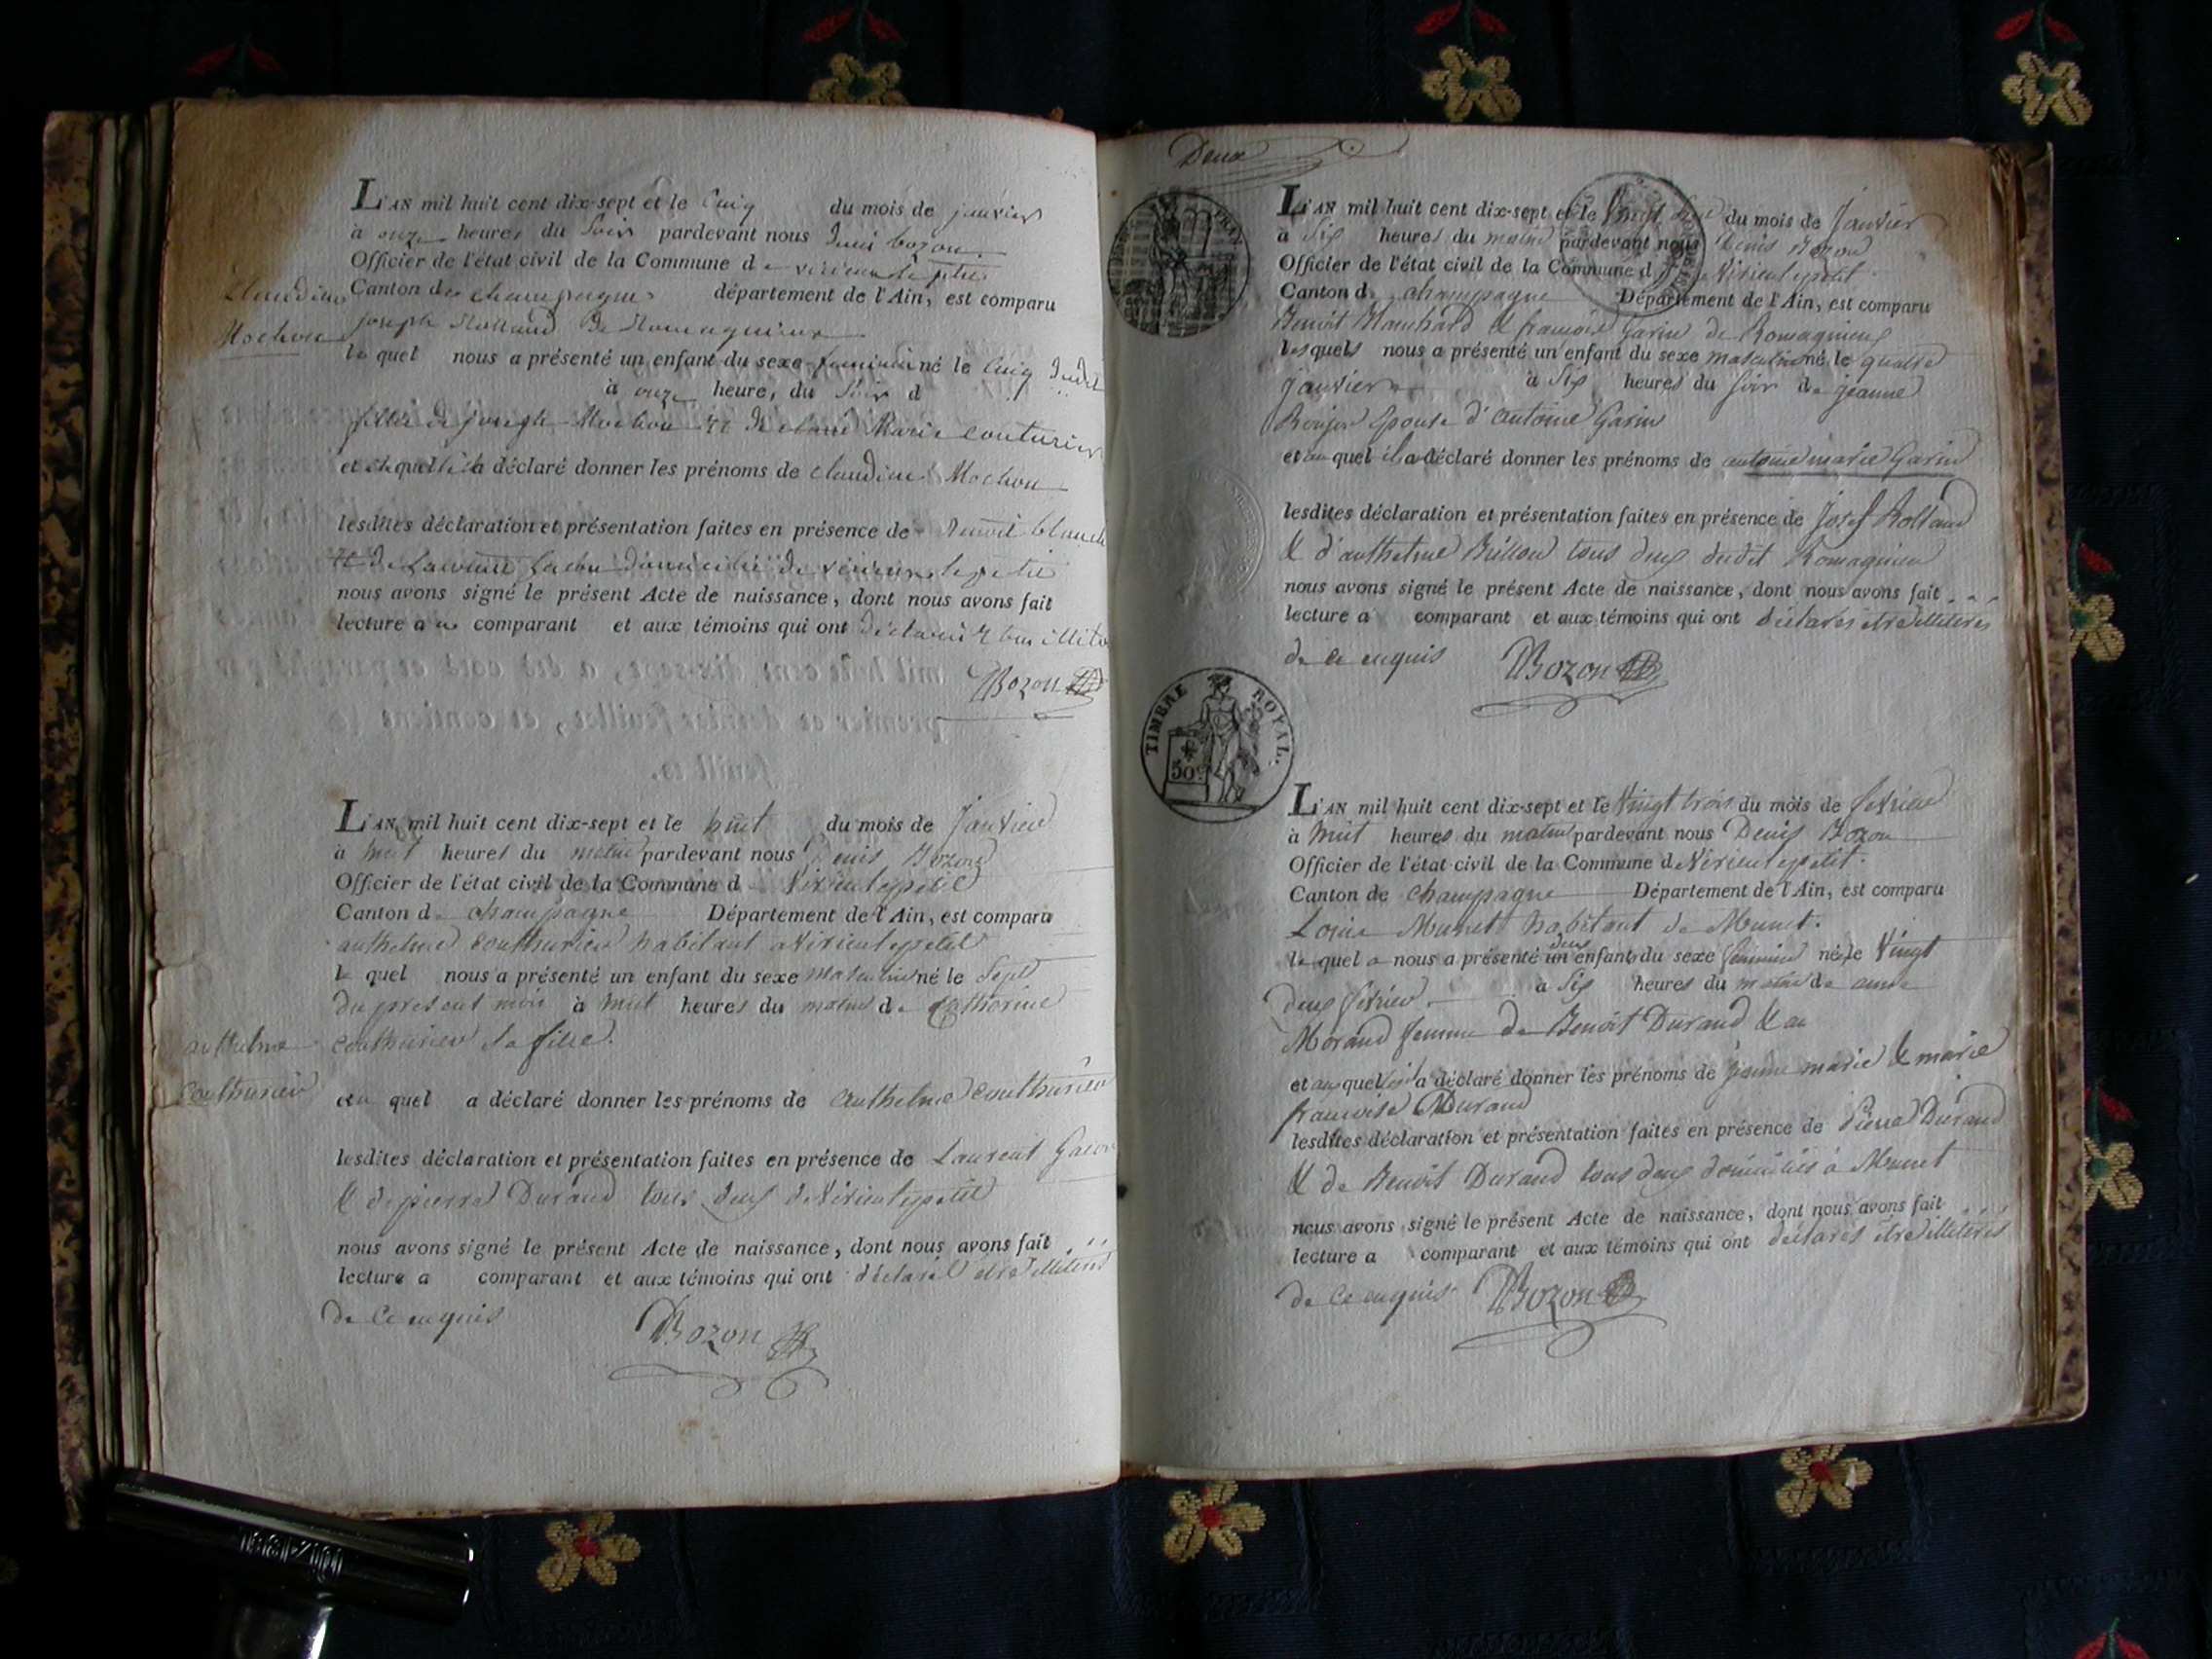 L'AN mil huit cent dix-sept et le Cinq du mois de janvier
à onze heures du Soir pardevant nous Deni bozon
Officier de l'état civil de la Commune de virieu le petit
Canton de Champagne département de l'Ain, est comparu
joseph Rolland de Romagnieux
Claudine
Mochon
le quel nous a présenté un enfant du sexe feminin né le Cinq dudit
à onze heure, du Soir d
fille de joseph Mochon et de Marie Couturier
et a déclaré donner les prénoms de claudine Mochon
lesdites déclaration et présentation faites en présence de Benoit
et de domicilié de virieu le petit
nous avons signé le présent Acte de naissance, dont nous avons fait
lecture au comparant et aux témoins qui ont déclaré
Bozon
L'AN mil huit cent dix-sept et le huit du mois de Janvier
à huit heures du matin pardevant nous Denis Bozon
Officier de l'état civil de la Commune d Virieulepetit
Canton de champagne Département de l'Ain, est comparu
anthelme Couthurier habitant a Virieulepetit
le quel nous a présenté un enfant du sexe masculin né le Sept
du present mois à huit heures du matin de Catherine
Couthurier sa fille.
anthelme
Couthurier
et au quel a déclaré donner les prénoms de anthelme Couthurier
lesdites déclaration et présentation faites en présence de Laurent
& de pierre Durand tous deux de Virieulepetit
nous avons signé le présent Acte de naissance, dont nous avons fait
lecture a comparant et aux témoins qui ont déclaré être illiterés
de ce enquis
Bozon
Deux
L'AN mil huit cent dix-sept et le du mois de Janvier
à Six heures du matin pardevant nous Denis Bozon
Officier de l'état civil de la Commune de Virieulepetit
Canton de champagne Département de l'Ain, est comparu
Benoit Blanchard & françois Garin de Romagnieux
lesquels nous a présenté un enfant du sexe masculin né le quatre
janvier à Six heures du soir de jeanne
épouse d'antoine Garin
et au quel il a déclaré donner les prénoms de antoine marie Garin
lesdites déclaration et présentation faites en présence de Josef Rolland
& d'anthelme Billion tous deux dudit Romagnieu
nous avons signé le présent Acte de naissance, dont nous avons fait
lecture a comparant et aux témoins qui ont déclarés être illiterés
de ce enquis Bozon
TIMBRE ROYAL.
50c
L'AN mil huit cent dix-sept et le Vingt trois du mois de fevrier
à huit heures du matin pardevant nous Denis Bozon
Officier de l'état civil de la Commune de Virieulepetit.
Canton de Champagne Département de l'Ain, est comparu
Louis Munet habitant de Munet.
deux
le quel nous a présenté un enfants du sexe feminin né le Vingt
deux fevrier à Six heures du matin de anne
Morand femme de Benoit Durand
et aux quel il a déclaré donner les prénoms de jeanne marie & marie
francoise Durand
lesdites déclaration et présentation faites en présence de Pierre Durand
& de Benoit Durand tous deux domiciliés à Munet
nous avons signé le présent Acte de naissance, dont nous avons fait
lecture a comparant et aux témoins qui ont déclarés être illiterés
de ce enquis. Bozon